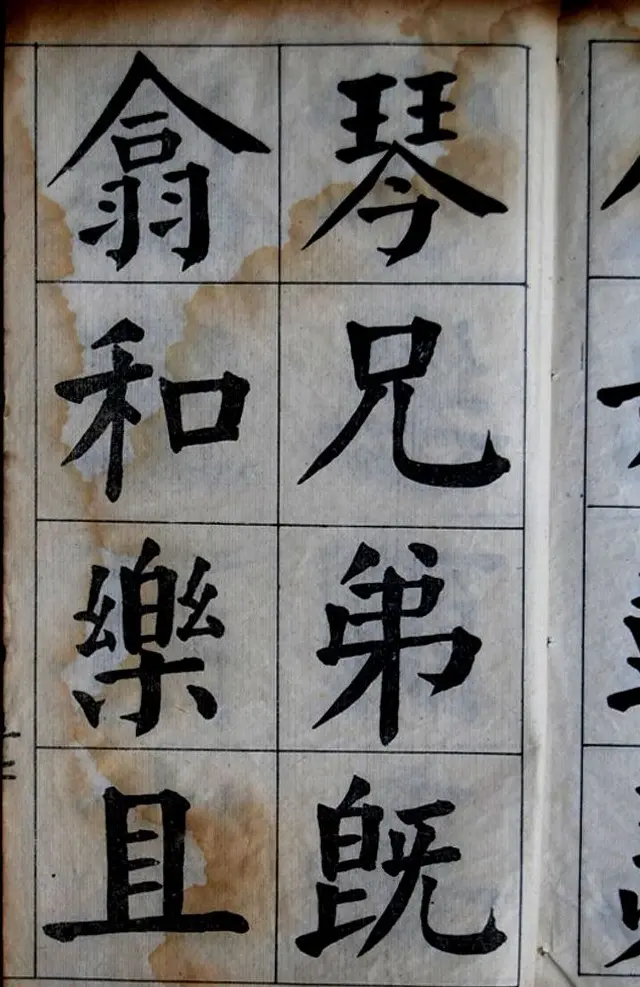 琴兄弟既
翕和樂且